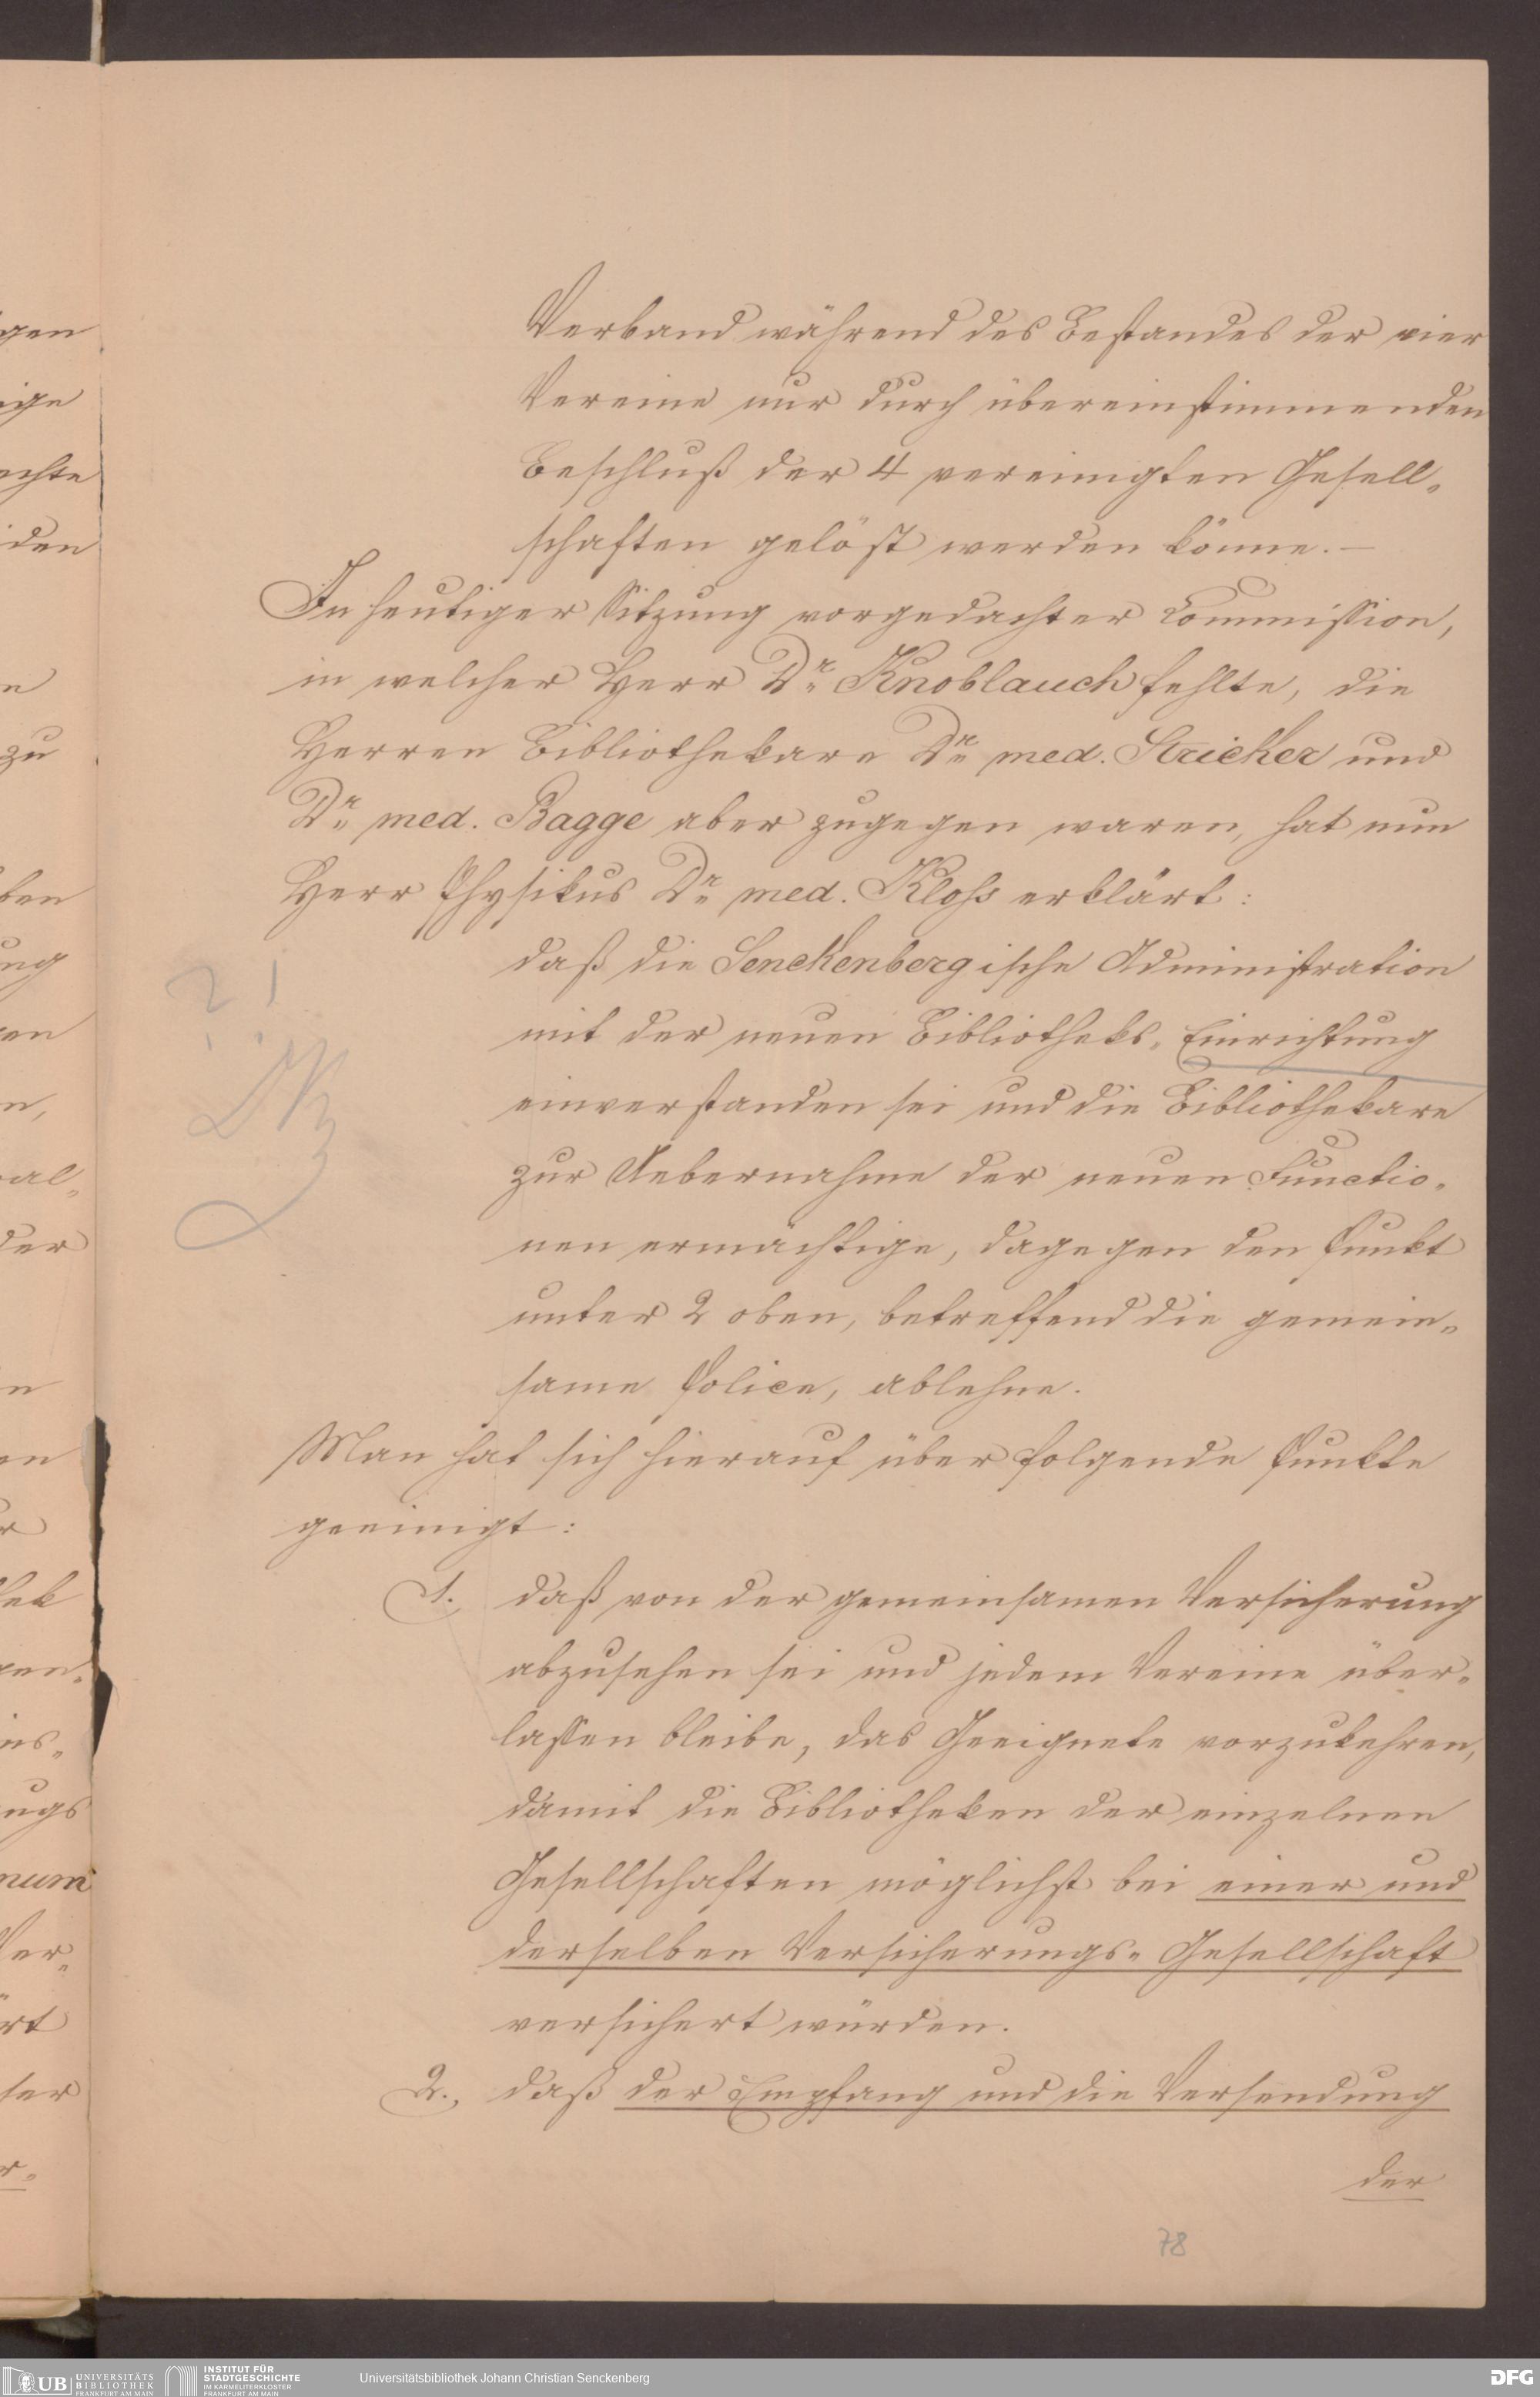 Verband während des Bestandes der vier
Vereine nur durch übereinstimmenden
Beschluß der 4 vereinigten Gesell-
schaften gelöst werden könne. —
In heutiger Sitzung vorgedachter Commission,
in welcher Herr Dr. Knoblauch fehlte, die
Herren Bibliothekare Dr. med. Stricker und
Dr. med. Bagge aber zugegen waren, hat nun
Herr Physikus Dr. med. Kloss erklärt:
daß die Senckenbergische Administration
mit der neuen Bibliotheks-Einrichtung
einverstanden sei und die Bibliothekare
zur Uebernahme der neuen Functio-
nen ermächtige, dagegen den Punkt
unter 2 oben, betreffend die gemein-
same Police, ablehne.
Man hat sich hierauf über folgende Punkte
geeinigt:
1. daß von der gemeinsamen Versicherung
abzusehen sei und jedem Vereine über-
lassen bleibe, das Geeignete vorzukehren,
damit die Bibliotheken der einzelnen
Gesellschaften möglichst bei einer und
derselben Versicherungs-Gesellschaft
versichert würden.
2. daß der Empfang und die Versendung
der
78
? !
gen
ige
achte
den
zu
ben
ung
der
num
Ver-
UB UNIVERSITÄTS BIBLIOTHEK FRANKFURT AM MAIN
INSTITUT FÜR STADTGESCHICHTE IM KARMELITERKLOSTER FRANKFURT AM MAIN
Universitätsbibliothek Johann Christian Senckenberg
DFG